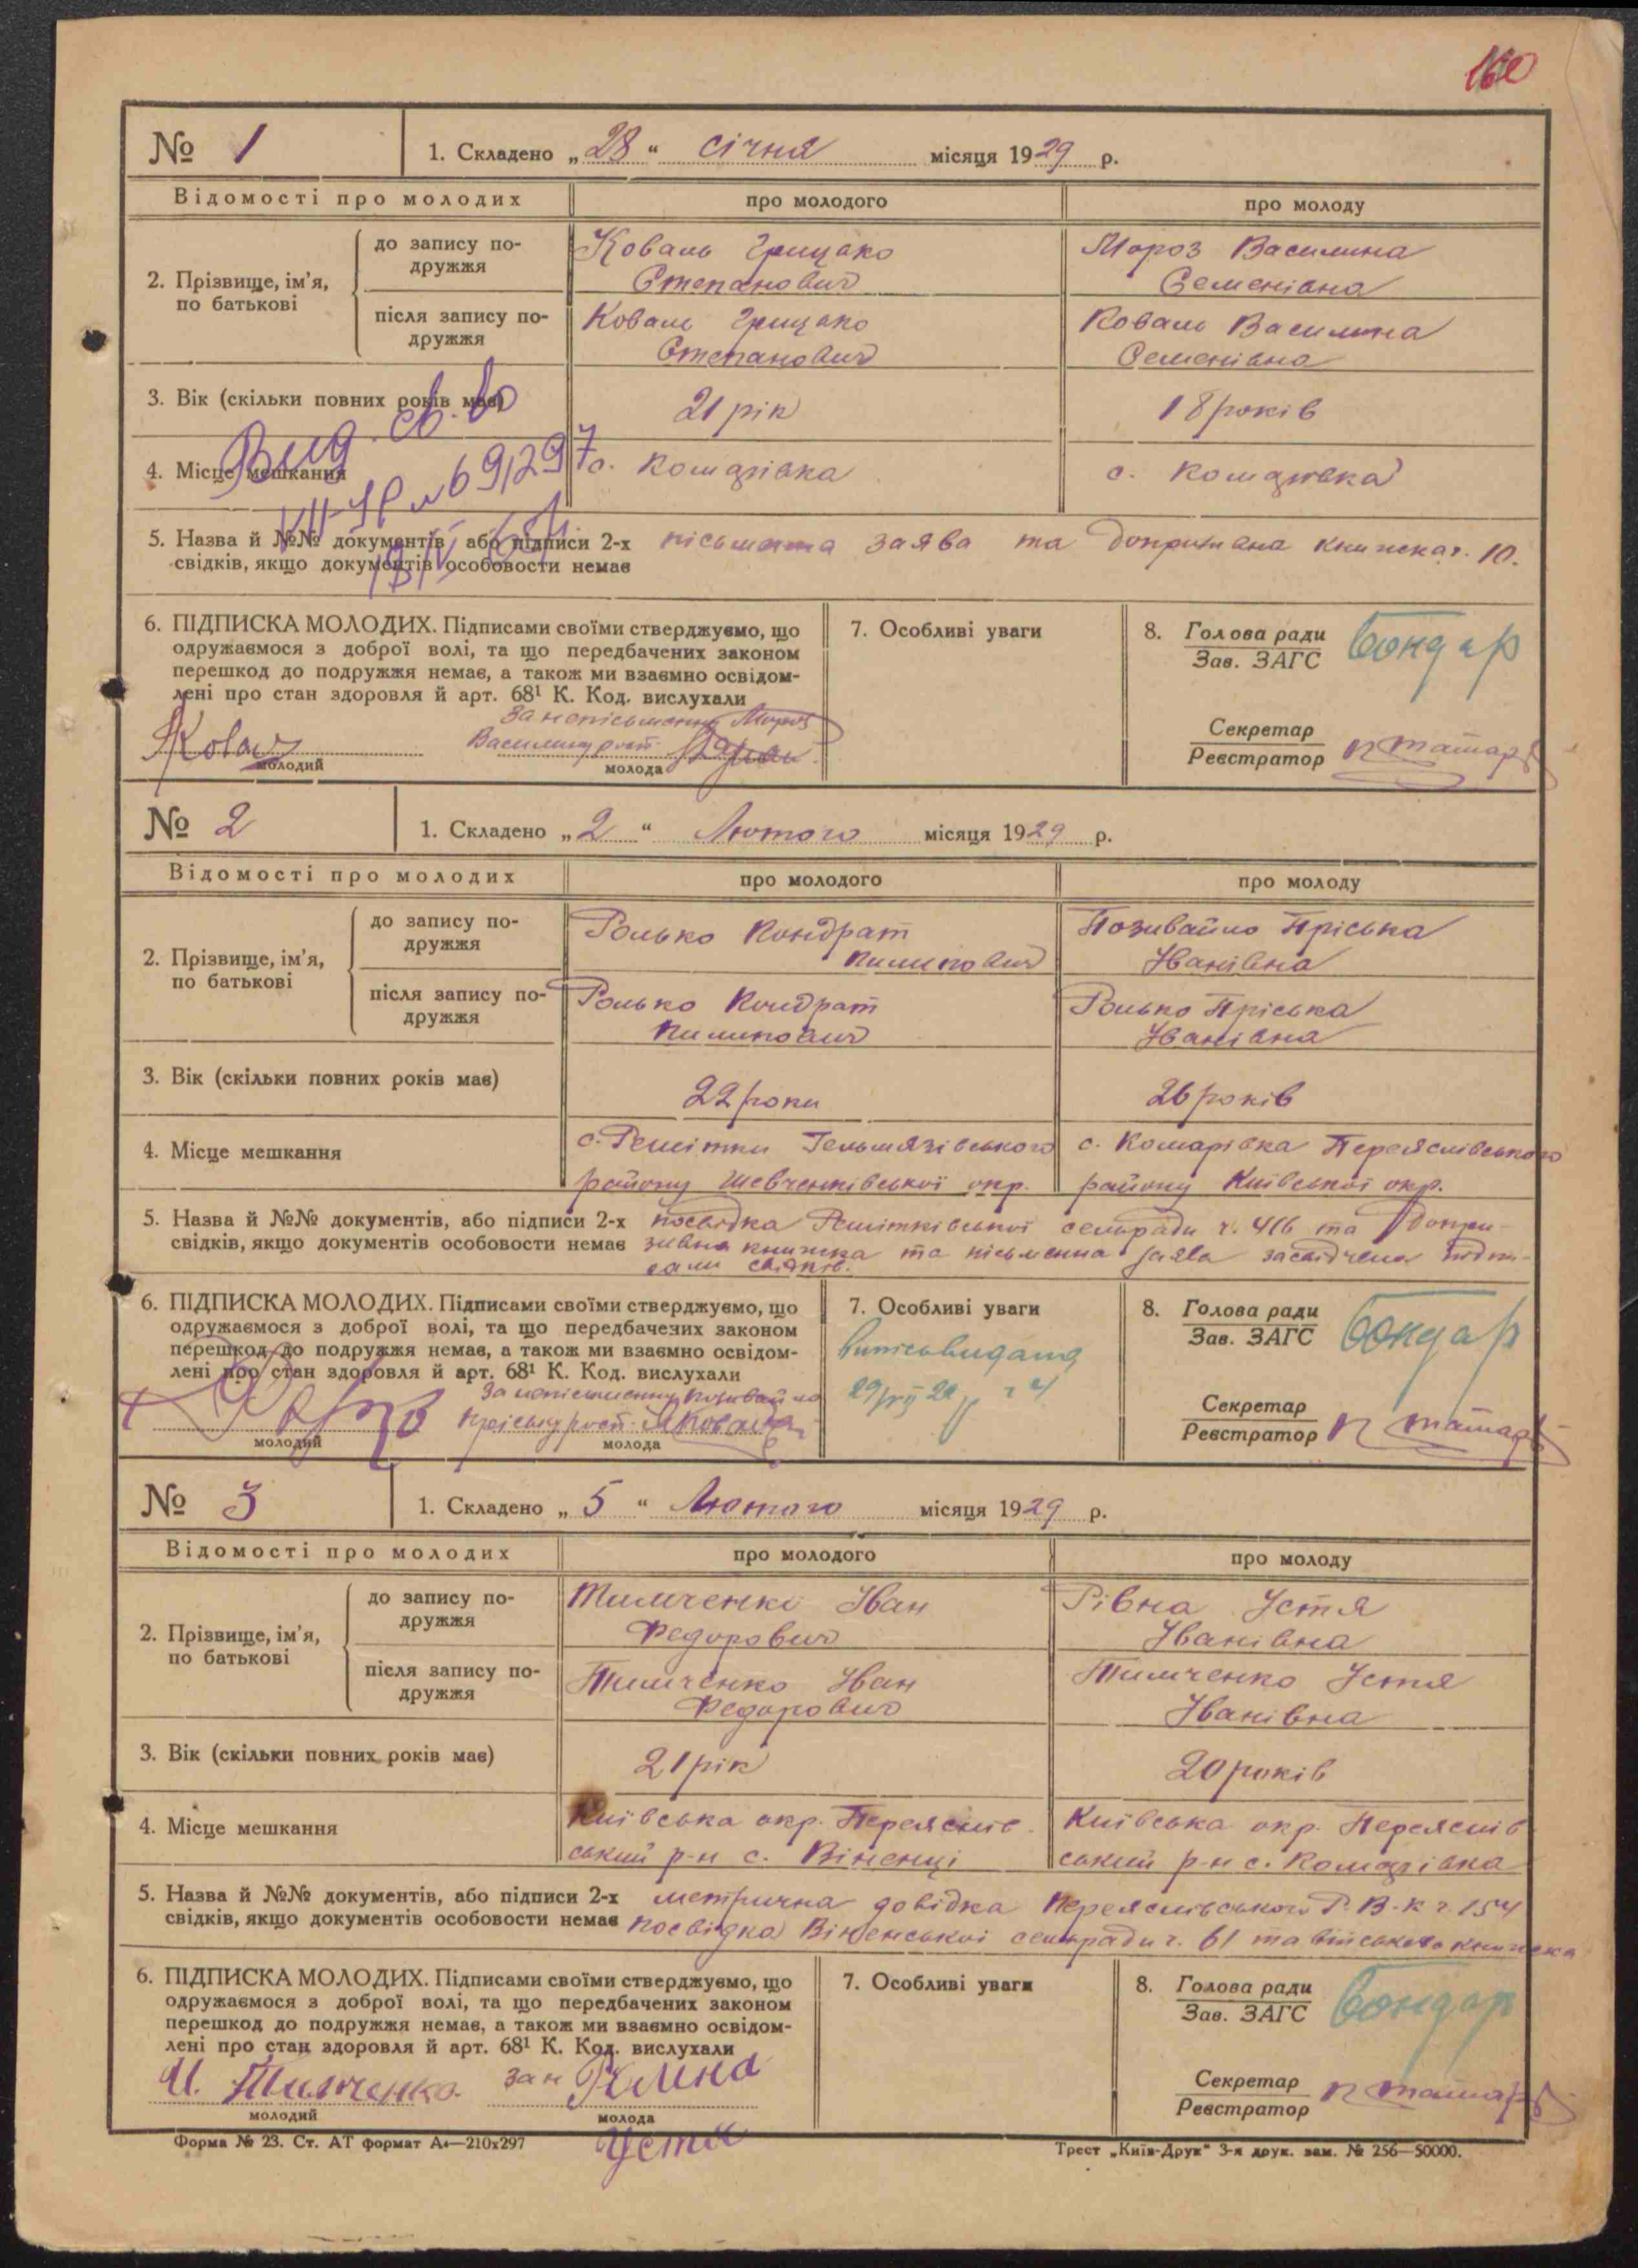 160
№ 1
1. Складено „28“ січня місяця 1929 р.
Відомості про молодих
про молодого
про молоду
2. Прізвище, ім'я, по батькові
до запису подружжя
Коваль Грицько
Степанович
Мороз Василина
Семенівна
після запису подружжя
Коваль Грицько
Степанович
Коваль Василина
Семенівна
3. Вік (скільки повних років має)
21 рік
18 років
Вид. св. во
4. Місце мешкання
с. Комарівка
с. Комарівка
5. Назва й №№ документів, або підписи 2-х
свідків, якщо документів особовости немає
пісьменна заява та допризивна книжка ч. 10.
6. ПІДПИСКА МОЛОДИХ. Підписами своїми стверджуємо, що
одружаємося з доброї волі, та що передбачених законом
перешкод до подружжя немає, а також ми взаємно освідом-
лені про стан здоровля й арт. 68¹ К. Код. вислухали
за непісьменну Мороз
Василину розп.
молодий
молода
7. Особливі уваги
8. Голова ради
Зав. ЗАГС
Бондар
Секретар
Реєстратор
№ 2
1. Складено „2“ Лютого місяця 1929 р.
Відомості про молодих
про молодого
про молоду
2. Прізвище, ім'я,
по батькові
до запису по-
дружжя
Ролько Кондрат
Пилипович
Позивайло Пріська
Іванівна
після запису по-
дружжя
Ролько Кондрат
Пилипович
Ролько Пріська
Іванівна
3. Вік (скільки повних років має)
22 роки
26 років
4. Місце мешкання
с. Решітки Гельмязівського
району Шевченківської окр.
с. Комарівка Переяслівського
району Київської окр.
5. Назва й №№ документів, або підписи 2-х
свідків, якщо документів особовости немає
посвідка Решітківської сельради ч. 416 та допри-
зивна книжка та пісьменна заява засвідчена підпи-
сами свідків.
6. ПІДПИСКА МОЛОДИХ. Підписами своїми стверджуємо, що
одружаємося з доброї волі, та що передбачених законом
перешкод до подружжя немає, а також ми взаємно освідом-
лені про стан здоровля й арт. 68¹ К. Код. вислухали
За непісьменну Позивайло
Пріську розп.
молодий
молода
7. Особливі уваги
8. Голова ради
Зав. ЗАГС
Бондар
Секретар
Реєстратор
№ 3
1. Складено „5“ Лютого місяця 1929 р.
Відомості про молодих
про молодого
про молоду
2. Прізвище, ім'я,
по батькові
до запису по-
дружжя
Тимченко Іван
Федорович
Рівна Устя
Іванівна
після запису по-
дружжя
Тимченко Іван
Федорович
Тимченко Устя
Іванівна
3. Вік (скільки повних років має)
21 рік
20 років
4. Місце мешкання
Київська окр. Переяслів-
ський р-н с. Віненці
Київська окр. Переяслів
ський р-н с. Комарівка
5. Назва й №№ документів, або підписи 2-х
свідків, якщо документів особовости немає
метрична довідка Переяслівського Р.В.К ч. 154
посвідка Віненської сельради ч. 61 та військова книжка
6. ПІДПИСКА МОЛОДИХ. Підписами своїми стверджуємо, що
одружаємося з доброї волі, та що передбачених законом
перешкод до подружжя немає, а також ми взаємно освідом-
лені про стан здоровля й арт. 68¹ К. Код. вислухали
И. Тимченко
молодий
молода
Устя
7. Особливі уваги
8. Голова ради
Зав. ЗАГС
Бондар
Секретар
Реєстратор
Форма № 23. Ст. АТ формат А4—210х297
Трест „Київ-Друк“ 3-я друк. зам. № 256—50000.